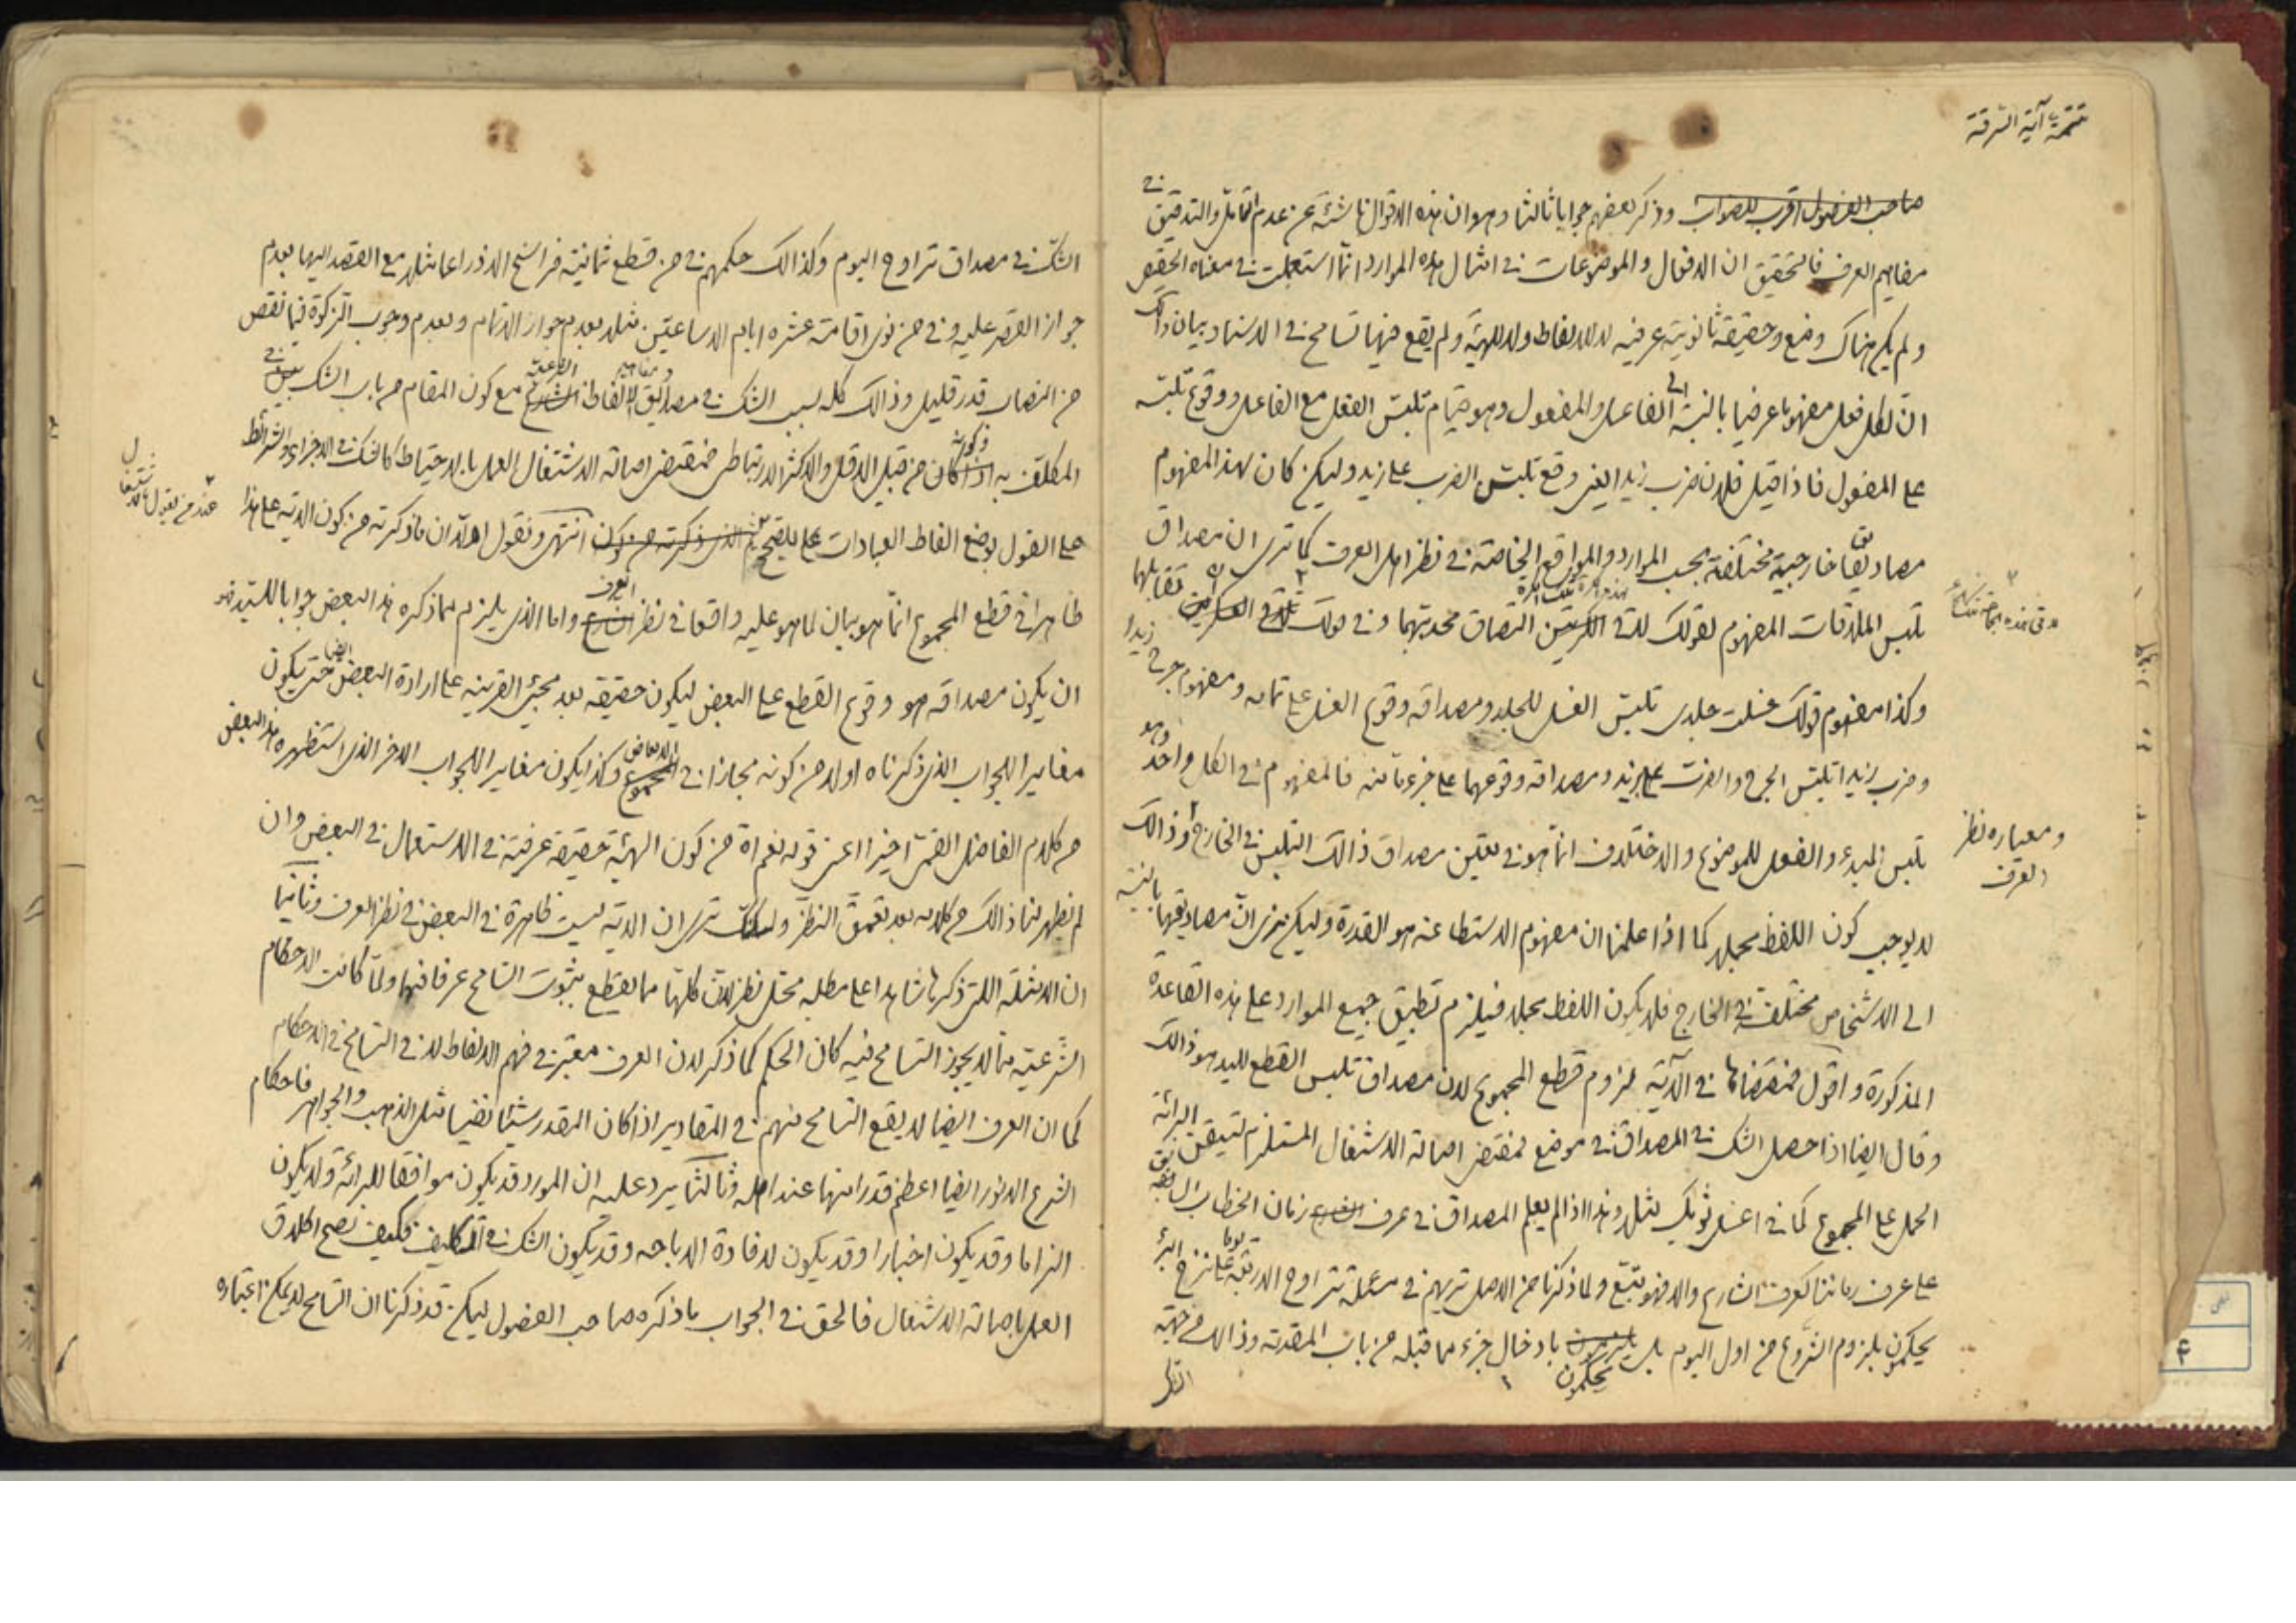 تتمة آية السرقة
صاحب الفصول اقرب للصواب وذكر بعضهم جوابا ثالثا وهو ان هذه الاقوال ناشئة عن عدم التامل والتدقيق في
مفاهيم العرف فالتحقيق ان الافعال والموضوعات في امثال هذه الموارد انما استعملت في معناه الحقيقي
ولم يكن هناك وضع وحقيقة ثانوية عرفية لا للالفاظ ولا للهيئة ولم يقع فيها تسامح في الاسناد وبيان ذلك
ان لكل فعل مفهوما عرضيا بالنسبة الى الفاعل والمفعول وهو قيام تلبس الفعل مع الفاعل ووقوع تلبسه
على المفعول فاذا قيل فلان ضرب زيدا يعني وقع تلبس الضرب على زيد وليكن كان لهذا المفهوم
مصاديق خارجية مختلفة بحسب الموارد والمواقع الخاصة في نظر اهل العرف كما ترى ان مصداق
تلبس الملاقات المفهوم لقولك تلاقي الكرتين التصاق محدبتهما وفي قولك تلاقي العسكرين تقابلهما
وكذا مفهوم قولك غسلت جلدي تلبس الغسل للجلد ومصداقه وقوع الغسل على تمامه ومفهوم جرح زيدا
وضرب زيدا تلبس الجرح والضرب على زيد ومصداقه وقوعهما على جزء ما منه فالمفهوم في الكل واحد وهو
تلبس المبدء والفعل للموضوع والاختلاف انما هو في تعيين مصداق ذالك التلبس في الخارج وذالك
ومعياره نظر
العرف
لا يوجب كون اللفظ مجملا كما اذا علمنا ان مفهوم الاستطاعة هو القدرة وليكن نرى ان مصاديقها بالنسبة
الى الاشخاص مختلفة في الخارج فلا يكون اللفظ مجملا فيلزم تطبيق جميع الموارد على هذه القاعدة
المذكورة واقول فمقتضاها في الآية لزوم قطع المجموع لان مصداق تلبس القطع لليد هو ذالك
وقال ايضا اذا حصل الشك في المصداق في موضع فمقتضى اصالة الاشتغال المستلزم لتيقن البرائة
الحمل على المجموع كما في اغسل ثوبك مثلا وهذا اذا لم يعلم المصداق في عرف زمان الخطاب
على عرف زماننا كعرف الشارع والا فهو يتبع ولما ذكرنا من الاصل تريهم في مسئلة تراوح الاربعة على نزح البئر
يحكمون بلزوم الشروع من اول اليوم بل يحكمون بادخال جزء مما قبله من باب المقدمة وذالك من جهة
الشك في مصداق تراوح اليوم وكذالك حكمهم في من قطع ثمانية فراسخ الا ذراعا مثلا مع القصد اليها بعدم
جواز القصر عليه وفي من نوى اقامة عشرة ايام الا ساعتين مثلا بعدم جواز الاتمام وبعدم وجوب الزكوة فيما نقص
من النصاب قدر قليل وذالك كله بسبب الشك في مصاديق الالفاظ الشرعية مع كون المقام من باب الشك في
المكلف به كان من قبيل الاقل والاكثر الارتباطي فمقتضى اصالة الاشتغال العمل بالاحتياط كالشك في الاجزاء والشرائط
عند من يقول
على القول بوضع الفاظ العبادات على الصحيح الذي ذكرته من كون انتهى ونقول اولا ان ما ذكرته من كون الاية على هذا
ظاهرا في قطع المجموع انما هو بيان لما هو عليه واقعا في نظر العرف واما الذي يلزم مما ذكره هذا البعض جوابا للسيد هو
ان يكون مصداقه هو وقوع القطع على البعض ليكون حقيقة بعد مجيئ القرينة على ارادة البعض ايضا حتى يكون
مغايرا للجواب الذي ذكرناه اولا من كونه مجازا في وكذا يكون مغايرا للجواب الاخر الذي استظهره هذا البعض
من كلام الفاضل القمي اخيرا اعني قوله نعم اه من كون الهيئة حقيقة عرفية في الاستعمال في البعض وان
لم نظهر لنا ذالك من كلامه بعد تعمق النظر ولكنك ترى ان الاية ليست ظاهرة في البعض في نظر العرف وثانيا
ان الامثلة اللتي ذكرها شاهدا على مطلبه محل نظر لان كلها مما يقطع بثبوت التسامح عرفا فيها ولما كانت الاحكام
الشرعية مما لا يجوز التسامح فيه كان الحكم كما ذكر لان العرف معتبر في فهم الالفاظ لا في التسامح في الاحكام
كما ان العرف ايضا لا يقع التسامح منهم في المقادير اذا كان المقدر شيئا نفيسا مثل الذهب والجواهر فاحكام
الشرع الانور ايضا اعظم قدرا منها عند اهله وثالثا يرد عليه ان المورد قد يكون موافقا للبرائة ولا يكون
الزاما وقد يكون اخبارا وقد يكون لافادة الاباحه وقد يكون الشك في التكليف فكيف نصح اطلاق
العمل باصالة الاشتغال فالحق في الجواب ما ذكره صاحب الفصول ليكن قد ذكرنا ان التسامح لا يمكن اعتباره